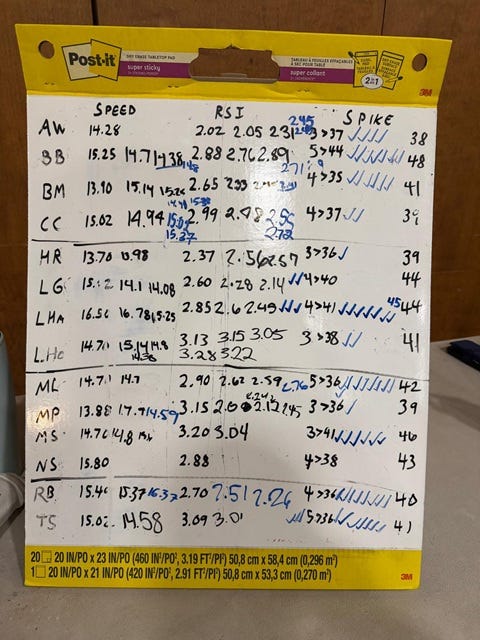 Post-it
super sticky
DRY ERASE TABLETOP PAD
TABLEAU À FEUILLES EFFAÇABLES À SEC POUR TABLE
super collant
2 in 1
3M
SPEED RSI SPIKE
AW 14.28 2.02 2.05 2.31 2.45 3>37 ✓✓✓✓ 38
BB 15.25 14.71 14.38 2.88 2.76 2.89 5>44 48
BM 13.90 15.14 2.65 4>35 41
CC 15.02 14.94 15.02 15.37 2.99 2.98 2.56 2.72 4>37 ✓✓ 39
HR 13.70 13.98 2.37 2.56 2.57 3>36 ✓ 39
LG 14.1 14.08 2.60 2.28 2.14 ✓✓ 4>40 44
LHA 16.56 16.78 15.25 2.85 2.6 2.49 ✓✓ 4>41 45 44
LHC 14.8 3.13 3.15 3.05 3 >38 ✓✓ 41
3.28 3.22
ML 14.71 14.7 2.90 2.62 2.59 2.76 5>36 42
MP 13.88 14.59 3.15 2.12 2.45 3>36 ✓ 39
MS 14.76 14.8 3.20 3.04 3>41 46
NS 15.80 2.88 4>38 43
RB 15.46 15.37 16.37 2.70 2.51 2.26 4>36 40
TS 15.02 14.58 3.09 3.01 5>36 41
20 20 IN/PO x 23 IN/PO (460 IN²/PO², 3.19 FT²/PI²) 50,8 cm x 58,4 cm (0,296 m²)
1 20 IN/PO x 21 IN/PO (420 IN²/PO², 2.91 FT²/PI²) 50,8 cm x 53,3 cm (0,270 m²)
3M